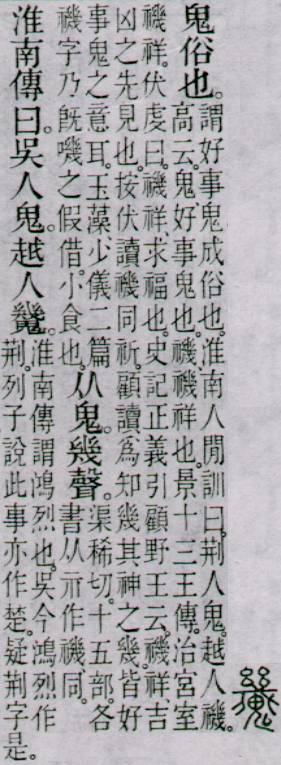 鬼俗也。
謂好事鬼成俗也。淮南人閒訓曰。荆人鬼。越人禨。
高云。鬼、好事鬼也。禨、禨祥也。景十三王傳。治宮室
禨祥。伏虔曰。禨祥、求福也。史記正義引顧野王云。禨祥吉
凶之先見也。按伏讀禨同祈。顧讀爲知幾其神之幾。皆好
事鬼之意耳。玉藻、少儀二篇
禨字乃旣嘰之假借。小食也。
从鬼。幾聲。
渠稀切。十五部。各
書从示作禨同。
淮南傳曰。吳人鬼。越人䰴。
淮南傳謂鴻烈也。吳今鴻烈作
荆。列子說此事亦作楚。疑荆字是。